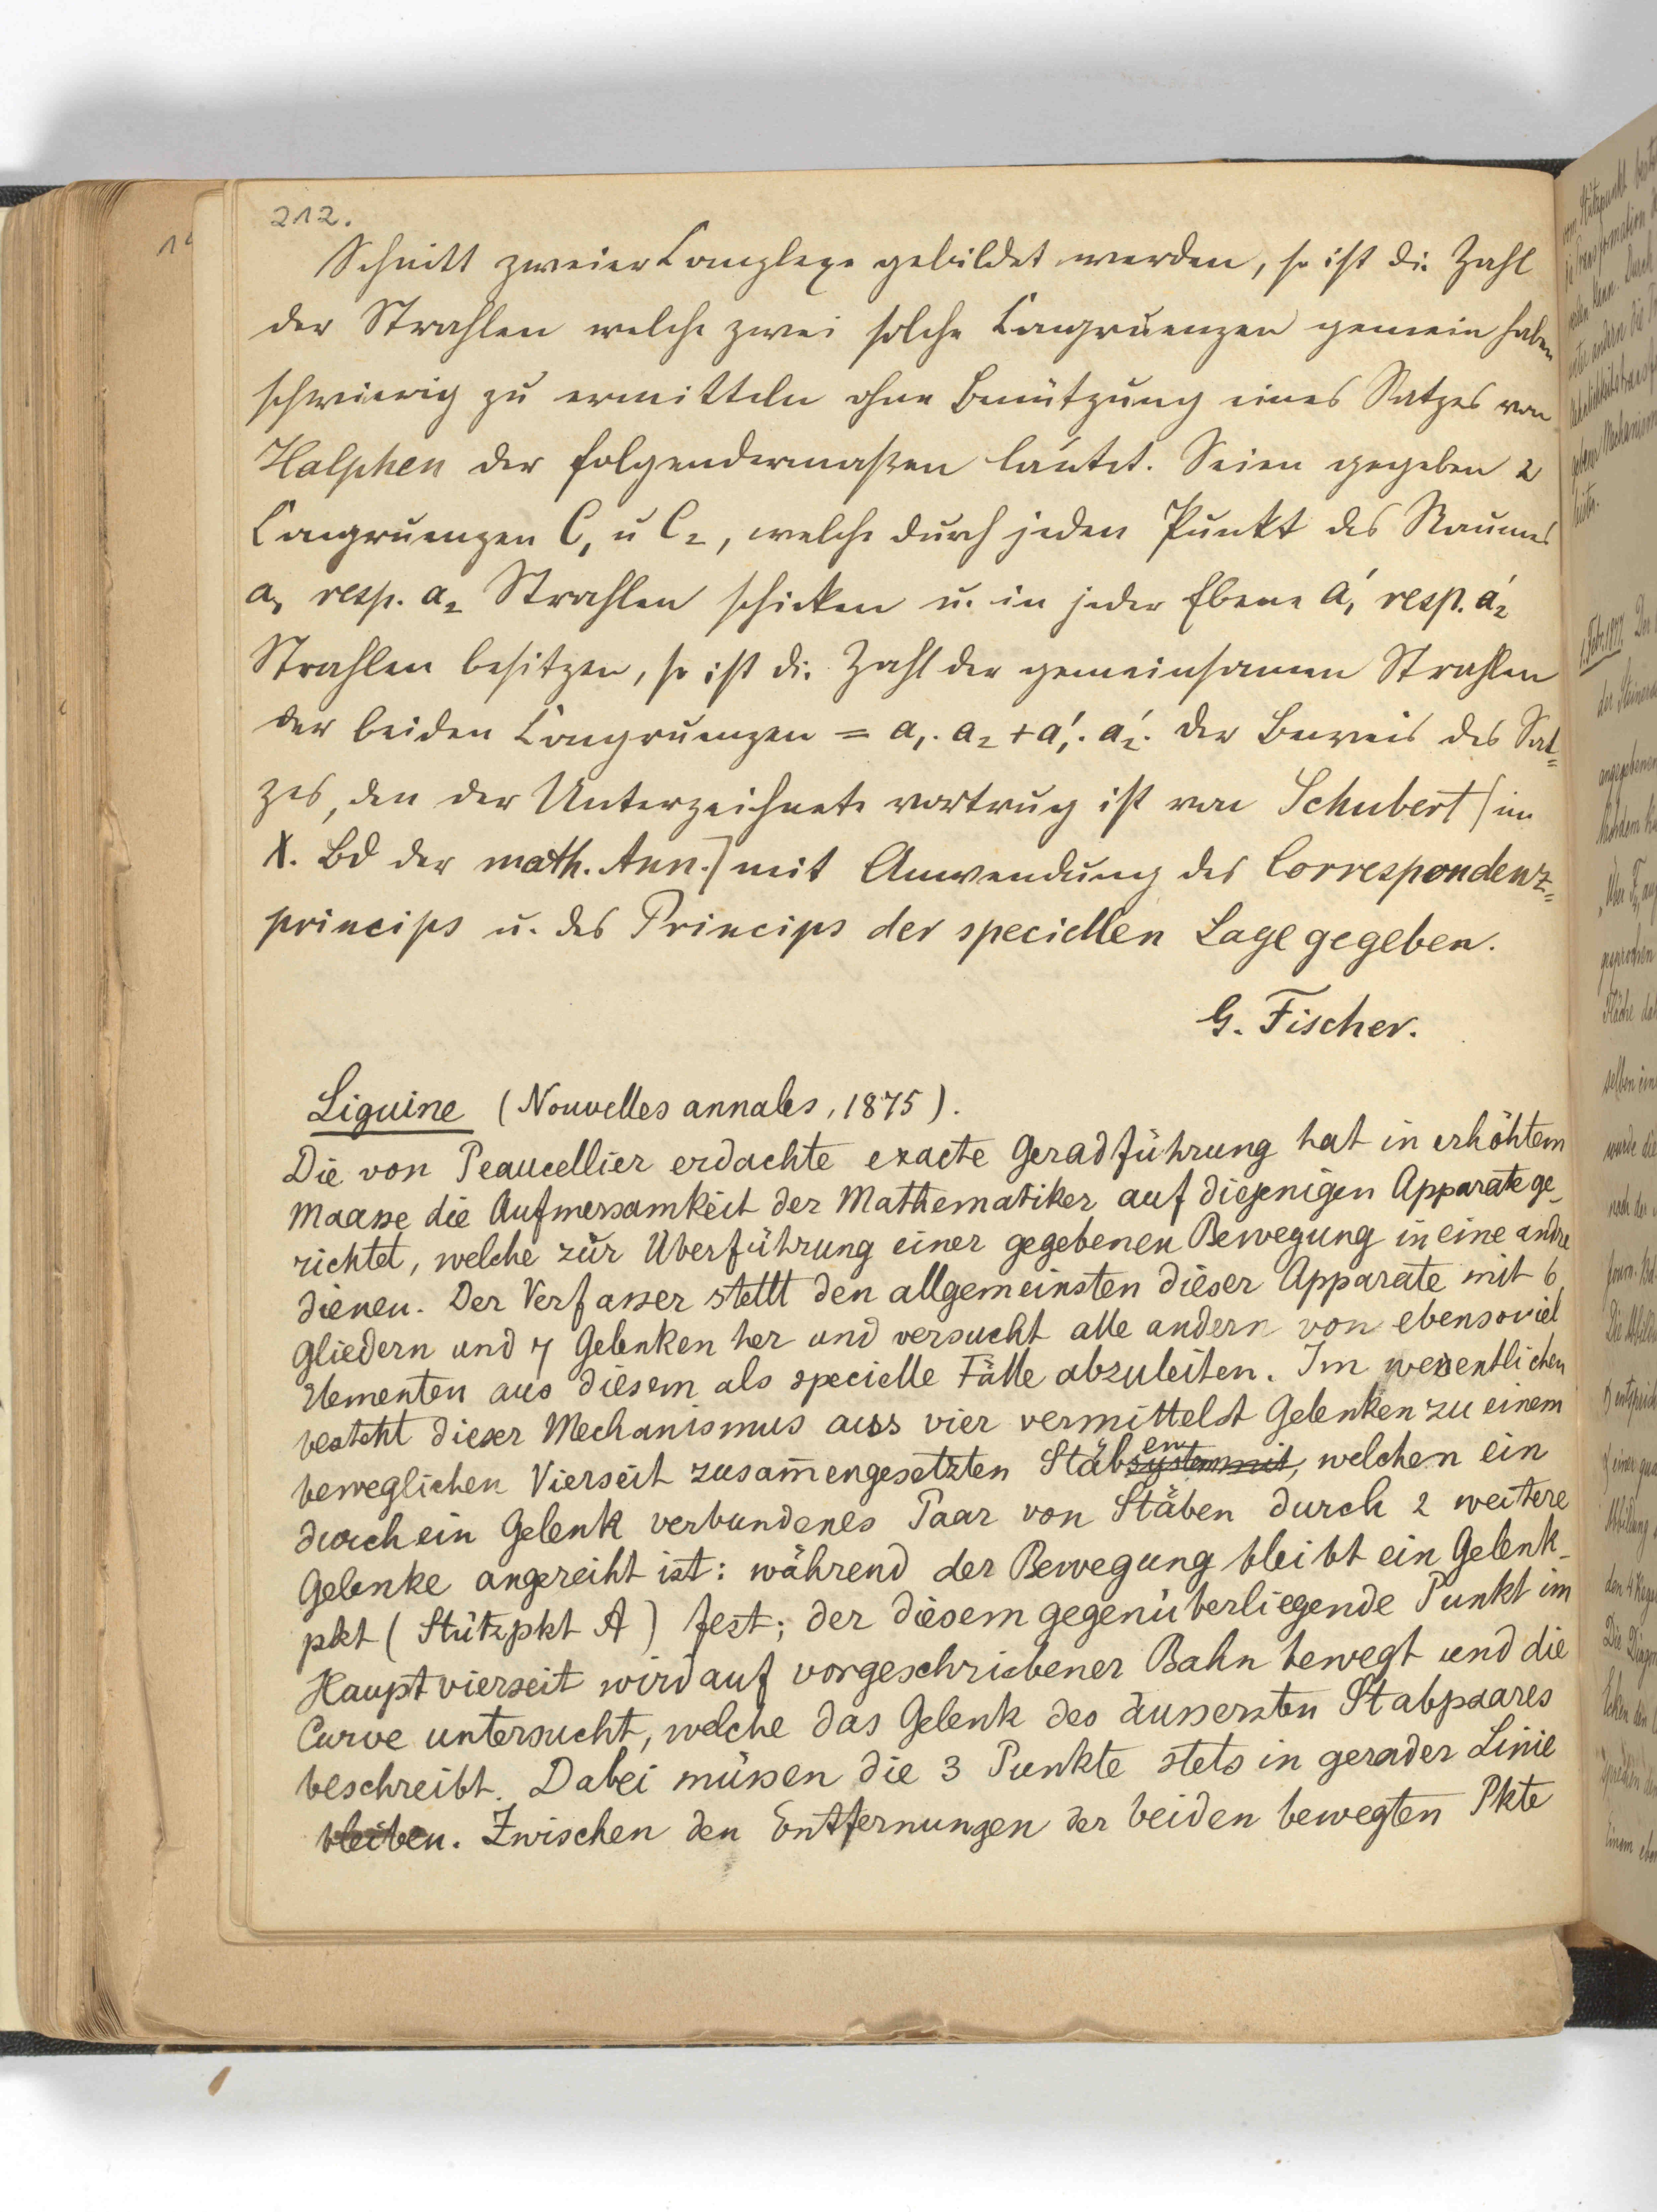 212.
Schnitt zweier Complexe gebildet werden, so ist die Zahl
der Strahlen welche zwei solche Congruenzen gemein haben
schwierig zu ermitteln ohne Benützung eines Satzes von
Halphen der folgendermaßen lautet. Seien gegeben 2
Congruenzen C₁ u C₂, welche durch jeden Punkt des Raumes
a₁ resp. a₂ Strahlen schicken u. in jeder Ebene a₁' resp. a₂'
Strahlen besitzen, so ist die Zahl der gemeinsamen Strahlen
der beiden Congruenzen = a₁. a₂ + a₁'. a₂'. Der Beweis des Sat=
zes, den der Unterzeichnete vortrug ist von Schubert (im
X. Bd der math. Ann.) mit Anwendung des Correspondenz=
princips u. des Princips der speciellen Lage gegeben.
G. Fischer.
Liguine (Nouvelles annales, 1875).
Die von Peaucellier erdachte exacte Geradführung hat in erhöhtem
Maasse die Aufmersamkeit der Mathematiker auf diejenigen Apparate ge-
richtet, welche zur Überführung einer gegebenen Bewegung in eine andre
dienen. Der Verfasser stellt den allgemeinsten dieser Apparate mit 6
Gliedern und 7 Gelenken her und versucht alle andern von ebensoviel
Elementen aus diesem als specielle Fälle abzuleiten. Im wesentlichen
besteht dieser Mechanismus aus vier vermittelst Gelenken zu einem
beweglichen Vierseit zusam̄engesetzten Stäbsystem mit en, welchen ein
durch ein Gelenk verbundenes Paar von Stäben durch 2 weitere
Gelenke angereiht ist: während der Bewegung bleibt ein Gelenk-
pkt (Stützpkt A) fest; der diesem gegenüberliegende Punkt im
Hauptvierseit wird auf vorgeschriebener Bahn bewegt und die
Curve untersucht, welche das Gelenk des äussersten Stabpaares
beschreibt. Dabei müssen die 3 Punkte stets in gerader Linie
bleiben. Zwischen den Entfernungen der beiden bewegten Pkte